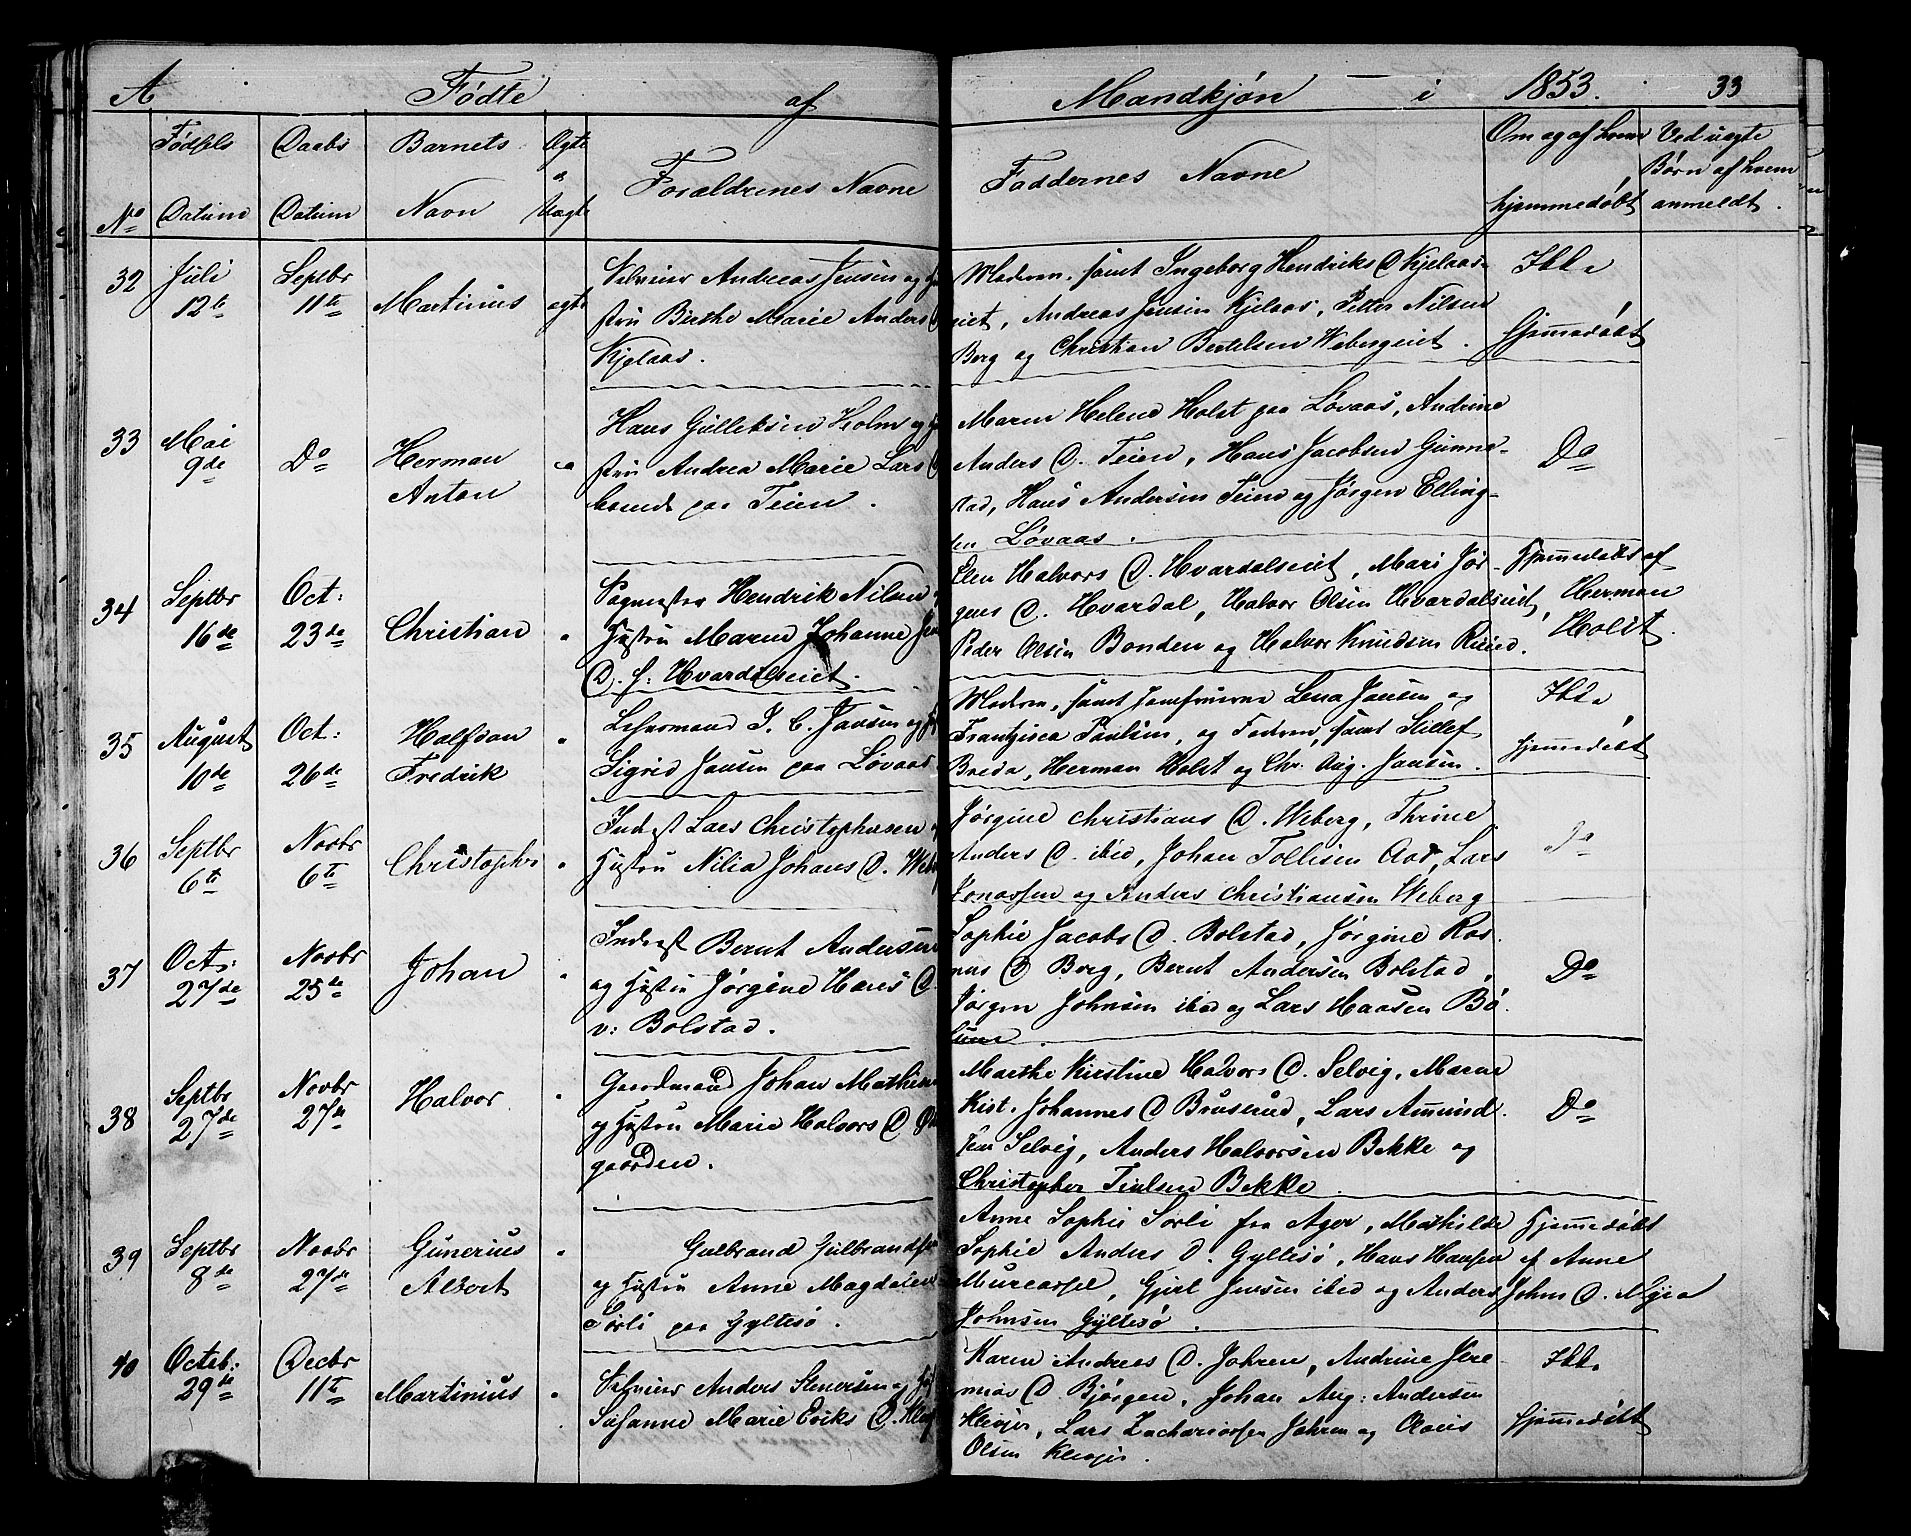 A Fødte af Mandkjøn i 1853. 33
No Fødsels Datum Daabs Datum Barnets Navn Ægte o Uægte Forældrenes Navne Faddernes Navne Om og af hvem hjemmedøbt Ved uægte Børn af hvem anmeldt.
32 Juli 12te Septbr 11te Martinus ægte
Selveier Andreas Jensen og
stru Birthe Marie Anders D
Kjelaas.
Moderen, samt Ingeborg Hendriks D Kjelaas-
eiet, Andreas Jensen Kjelaas, Petter Nilsen
Berg og Christian Bertelsen Webergeiet.
Ikke
hjemmedøbt
33 Mai 9de Do Herman Anton
Hans Gulleksen Holm og
stru Andrea Marie Lars D
boende paa Teien.
Maren Helene Holst paa Løvaas, Andrine
Anders D. Teien, Hans Jacobsen Gunne-
stad, Hans Andersen Teien og Jørgen Elling-
sen Løvaas.
Do
34 Septbr 16de Oct: 23de Christian "
Sagmester Hendrik Nilsen
Hustru Maren Johanne
D. f: Hvardalseiet.
Elen Halvors D. Hvardalseiet, Mari Jør-
gens D. Hvardal, Halvor Olsen Hvardalseiet,
Peder Olsen Bonden og Halvor Knudsen
Hjemmedøbt af
Herman
Holst.
35 August 10de Oct: 26de Halfdan Fredrik "
Lensmand I. C. Jansen og
Sigrid Jansen paa Løvaas
Moderen, samt Jomfruerne Lena Jansen og
Frantzisca Paulsen, og Faderen, samt
Breda, Herman Holst og Chr. Aug. Jansen.
Ikke
hjemmedøbt
36 Septbr 6te Novbr 6te Christopher "
Inderst Lars Christophersen
Hustru Nilia Johans D.
Jørgine Christians D. Weberg, Thrine
Anders D. ibid, Johan Tollisen Aas, Lars
Jonassen og Anders Christiansen Weberg
Do
37 Oct: 27de Novbr 25de Johan "
Inderst Bernt Andersen
og Hustru Jørgine Hans D.
v: Bolstad.
Sophie Jacobs D. Bolstad, Jørgine Ras-
mus D Borg, Bernt Andersen Bolstad,
Jørgen Johnsen ibid og Lars Haasen Bø-
Do
38 Septbr 27de Novbr 27de Halvor "
Gaardmand Johan Mathisen
og Hustru Marie Halvors D
gaarden.
Marthe Kirstine Halvors D. Selvig, Maren
Kist. Johannes D Bruserud, Lars Amund-
sen Selvig, Anders Halvorsen Bekke og
Christopher Bekke.
Do
39 Septbr 8de Novbr 27de Gunerius Albert "
Gulbrand Gulbrandsen
og Hustru Anne Magdalene
Sørli paa Gyltesø.
Anne Sophie Sørli fra Ager, Mathilde
Sophie Anders D. Gyltesø, Hans Hansen
Murcassel, Gjert Jensen ibid og Anders
Johnsen Gyltesø.
Hjemmedøbt
af Anne
Johns D. Myra
40 Octob: 29de Decbr 11te Martinius "
Selveier Anders Stenersen og
Susanne Marie Eriks D.
Karen Andreas D. Johren, Andrine Jere-
mias D Bjørgen, Johan Aug: Andersen
Klevjer, Lars Zachariassen Johren og Claus
Olsen Klevjer.
Ikke
hjemmedøbt